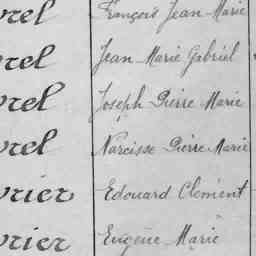 rel François Jean Marie
rel Jean Marie Gabriel
rel Joseph Pierre Marie
rel Narcisse Pierre Marie
rier Edouard Clément
rier Eugène Marie